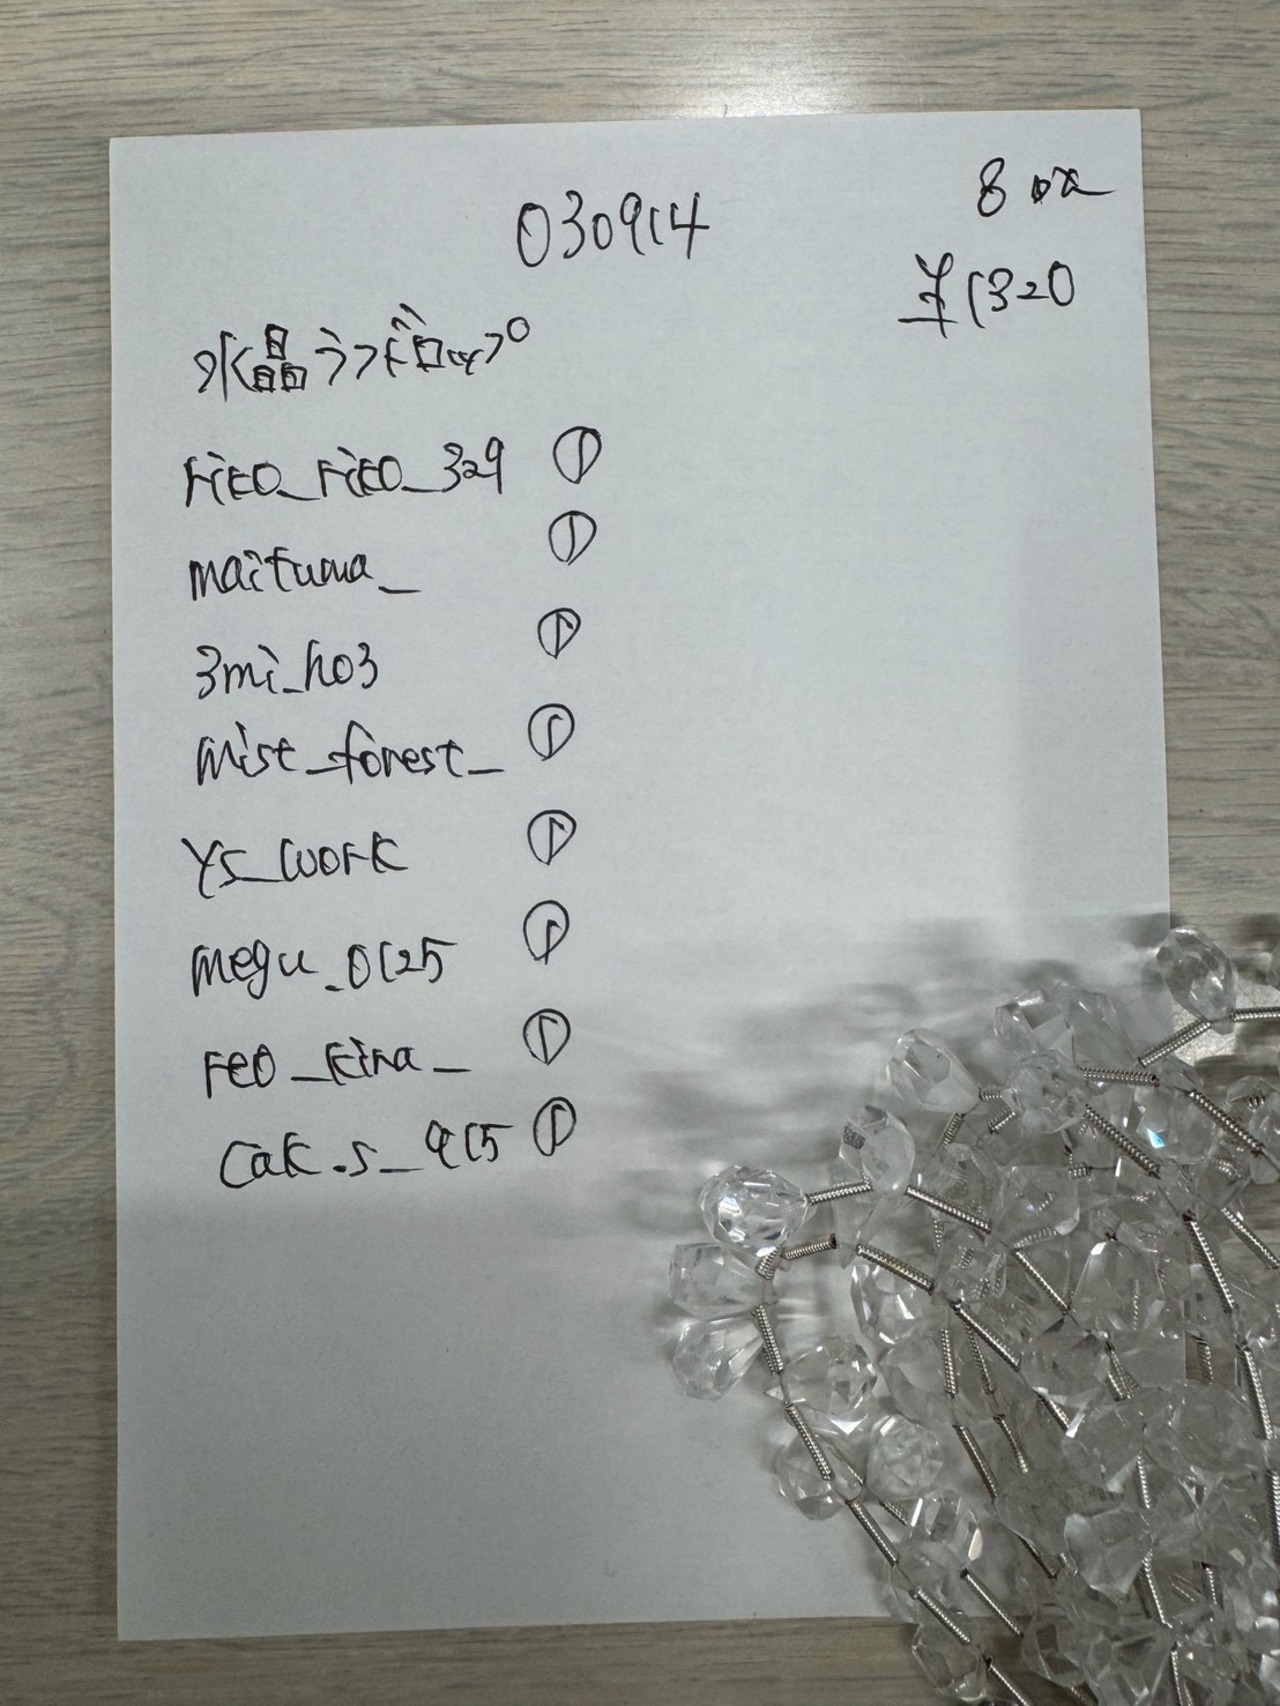 030914
8pc
¥1320
水晶ラフドロップ
riko_riko_329 ①
maituma_ ①
3mi_ho3 ①
mist_forest_ ①
ys_work ①
megu_0125 ①
reo_kira_ ①
cak.s_915 ①